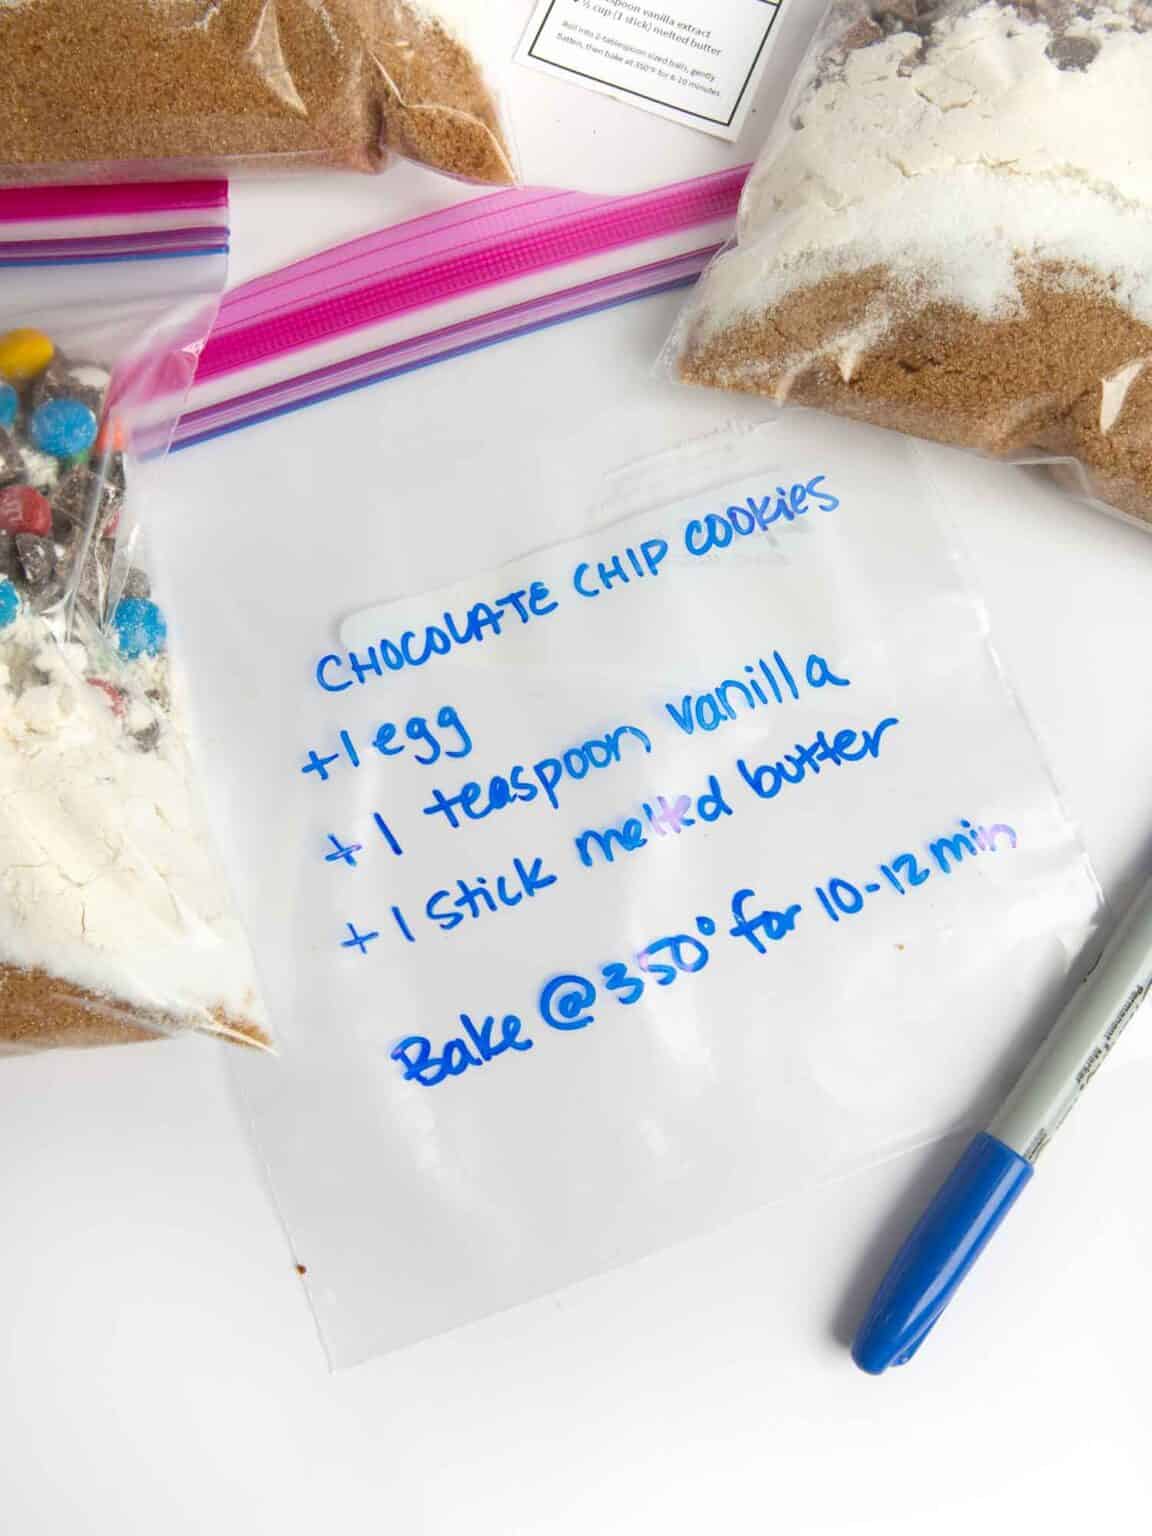 vanilla extract
½ cup (1 stick) melted butter
Roll into 2-tablespoon sized balls, gently
flatten, then bake at 350°F for 8-10 minutes
CHOCOLATE CHIP COOKIES
+1 egg
+1 teaspoon vanilla
+1 stick melted butter
Bake @ 350° for 10-12 min
Permanent Marker